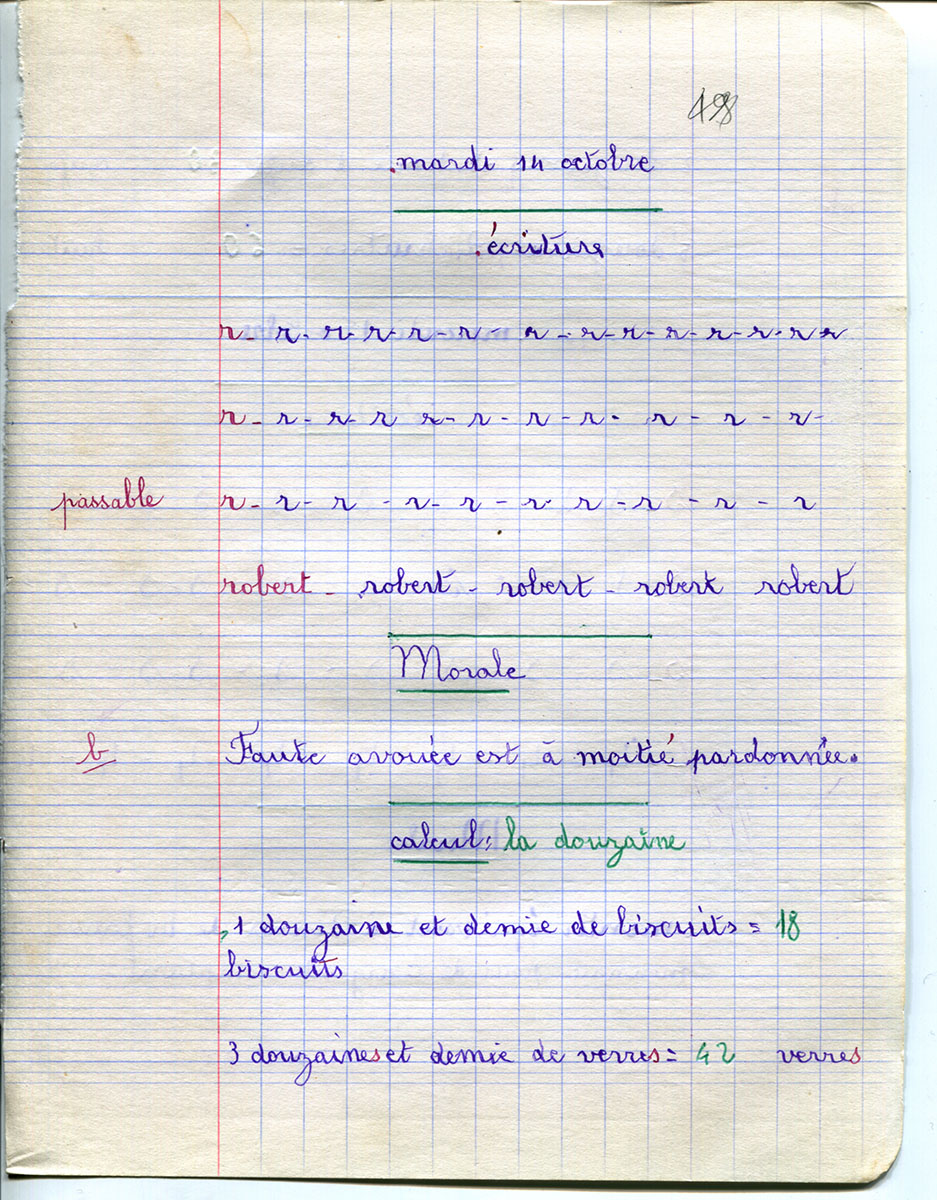 498
mardi 14 octobre
écriture
r - r - r - r - r - r - r - r - r - r - r - r - r r
r - r - r - r r - r - r - r - r - r - r -
passable r - r - r - r - r - r - r - r - r - r
robert - robert - robert - robert robert
Morale
b Faute avouée est à moitié pardonnée.
calcul: la douzaine
1 douzaine et demie de biscuits = 18
biscuits
3 douzaines et demie de verres = 42 verres